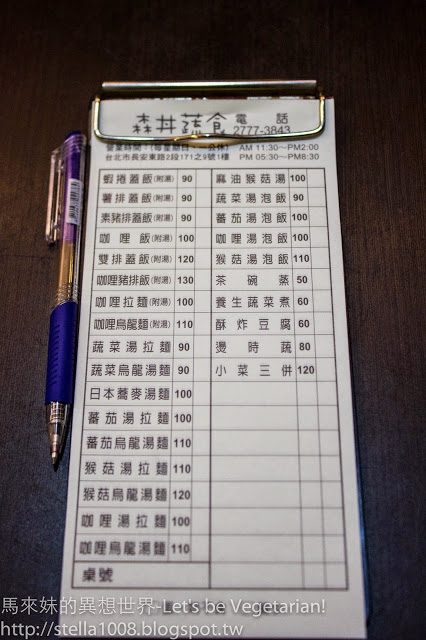 森丼蔬食 電話
2777-3843
營業時間:(每星期日、一公休) AM 11:30～PM2:00
台北市長安東路2段171之9號1樓 PM 05:30～PM8:30
蝦捲蓋飯(附湯) 90 麻油猴菇湯 100
薯排蓋飯(附湯) 90 蔬菜湯泡飯 90
素豬排蓋飯(附湯) 90 蕃茄湯泡飯 100
咖哩飯(附湯) 100 咖哩湯泡飯 100
雙排蓋飯(附湯) 120 猴菇湯泡飯 110
咖哩豬排飯(附湯) 130 茶碗蒸 50
咖哩拉麵(附湯) 100 養生蔬菜煮 60
咖哩烏龍麵(附湯) 110 酥炸豆腐 60
蔬菜湯拉麵 90 燙時蔬 80
蔬菜烏龍湯麵 90 小菜三併 120
日本蕎麥湯麵 100
蕃茄湯拉麵 100
蕃茄烏龍湯麵 110
猴菇湯拉麵 110
猴菇烏龍湯麵 120
咖哩湯拉麵 100
咖哩烏龍湯麵 110
桌號
馬來妹的異想世界-Let's be Vegetarian!
http://stella1008.blogspot.tw